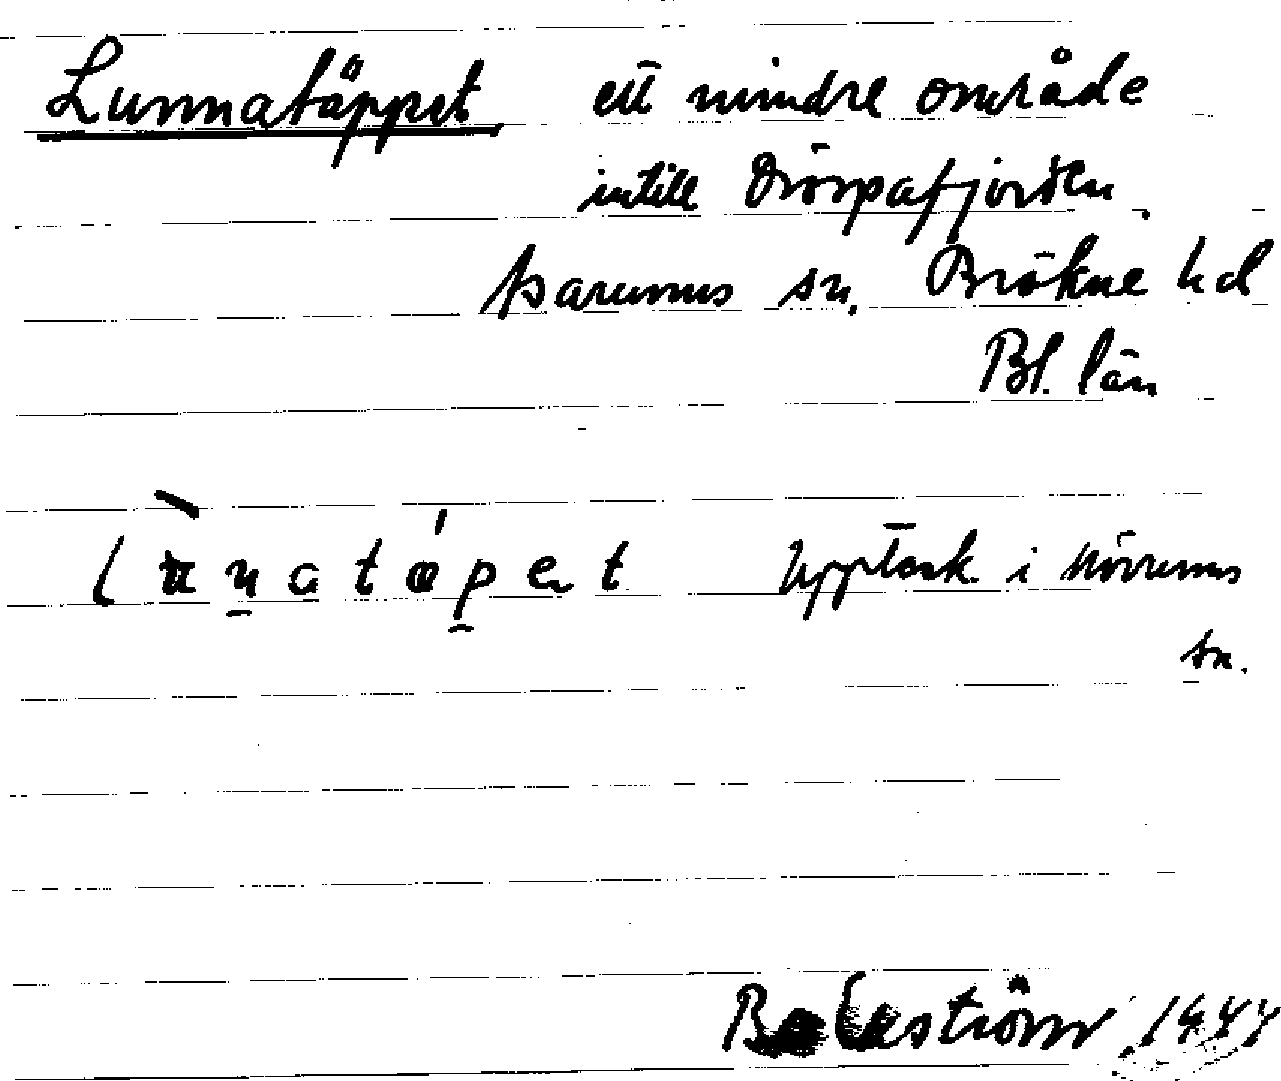 Lunnatäppet ett mindre område
intill Drörpafjorden.
Asarums sn. Bräkne hd
Bl. län
lunatäpet Uppteck. i Mörrums
sn.
1944